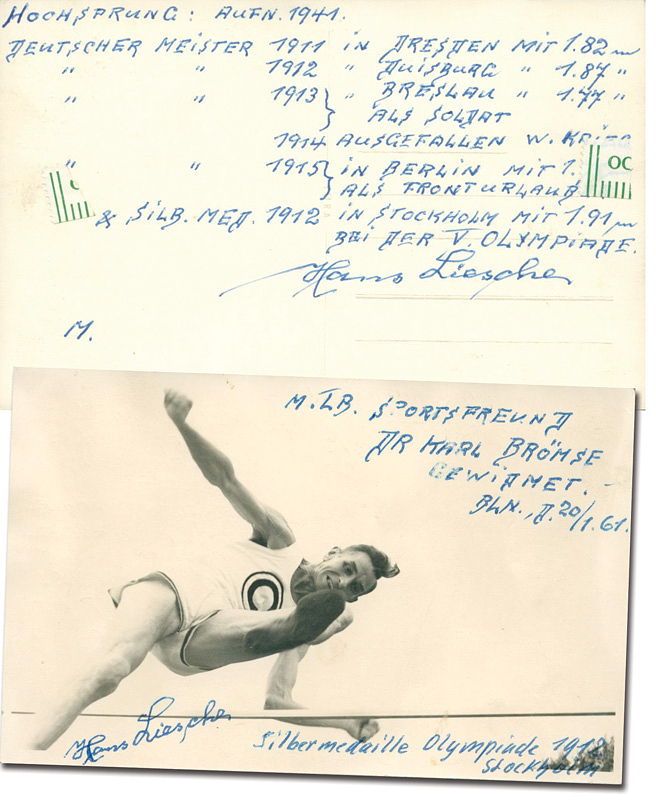 HOCHSPRUNG: AUFN. 1941.
DEUTSCHER MEISTER 1911 IN DRESDEN MIT 1.82 m
" " 1912 " DUISBURG " 1.87 "
" " 1913 } " BRESLAU " 1.77 "
ALS SOLDAT
1914 AUSGEFALLEN W.
" " 1915 } IN BERLIN MIT 1.
ALS FRONTURLAUB
& SILB. MED. 1912 IN STOCKHOLM MIT 1.91 m
BEI DER V. OLYMPIADE.
Hans Liesche
M.
M. LB. SPORTSFREUND
DR KARL BRÖMSE
GEWIDMET. -
BLN., D. 20/1.61.
Hans Liesche
Silbermedaille Olympiade 1912
Stockholm